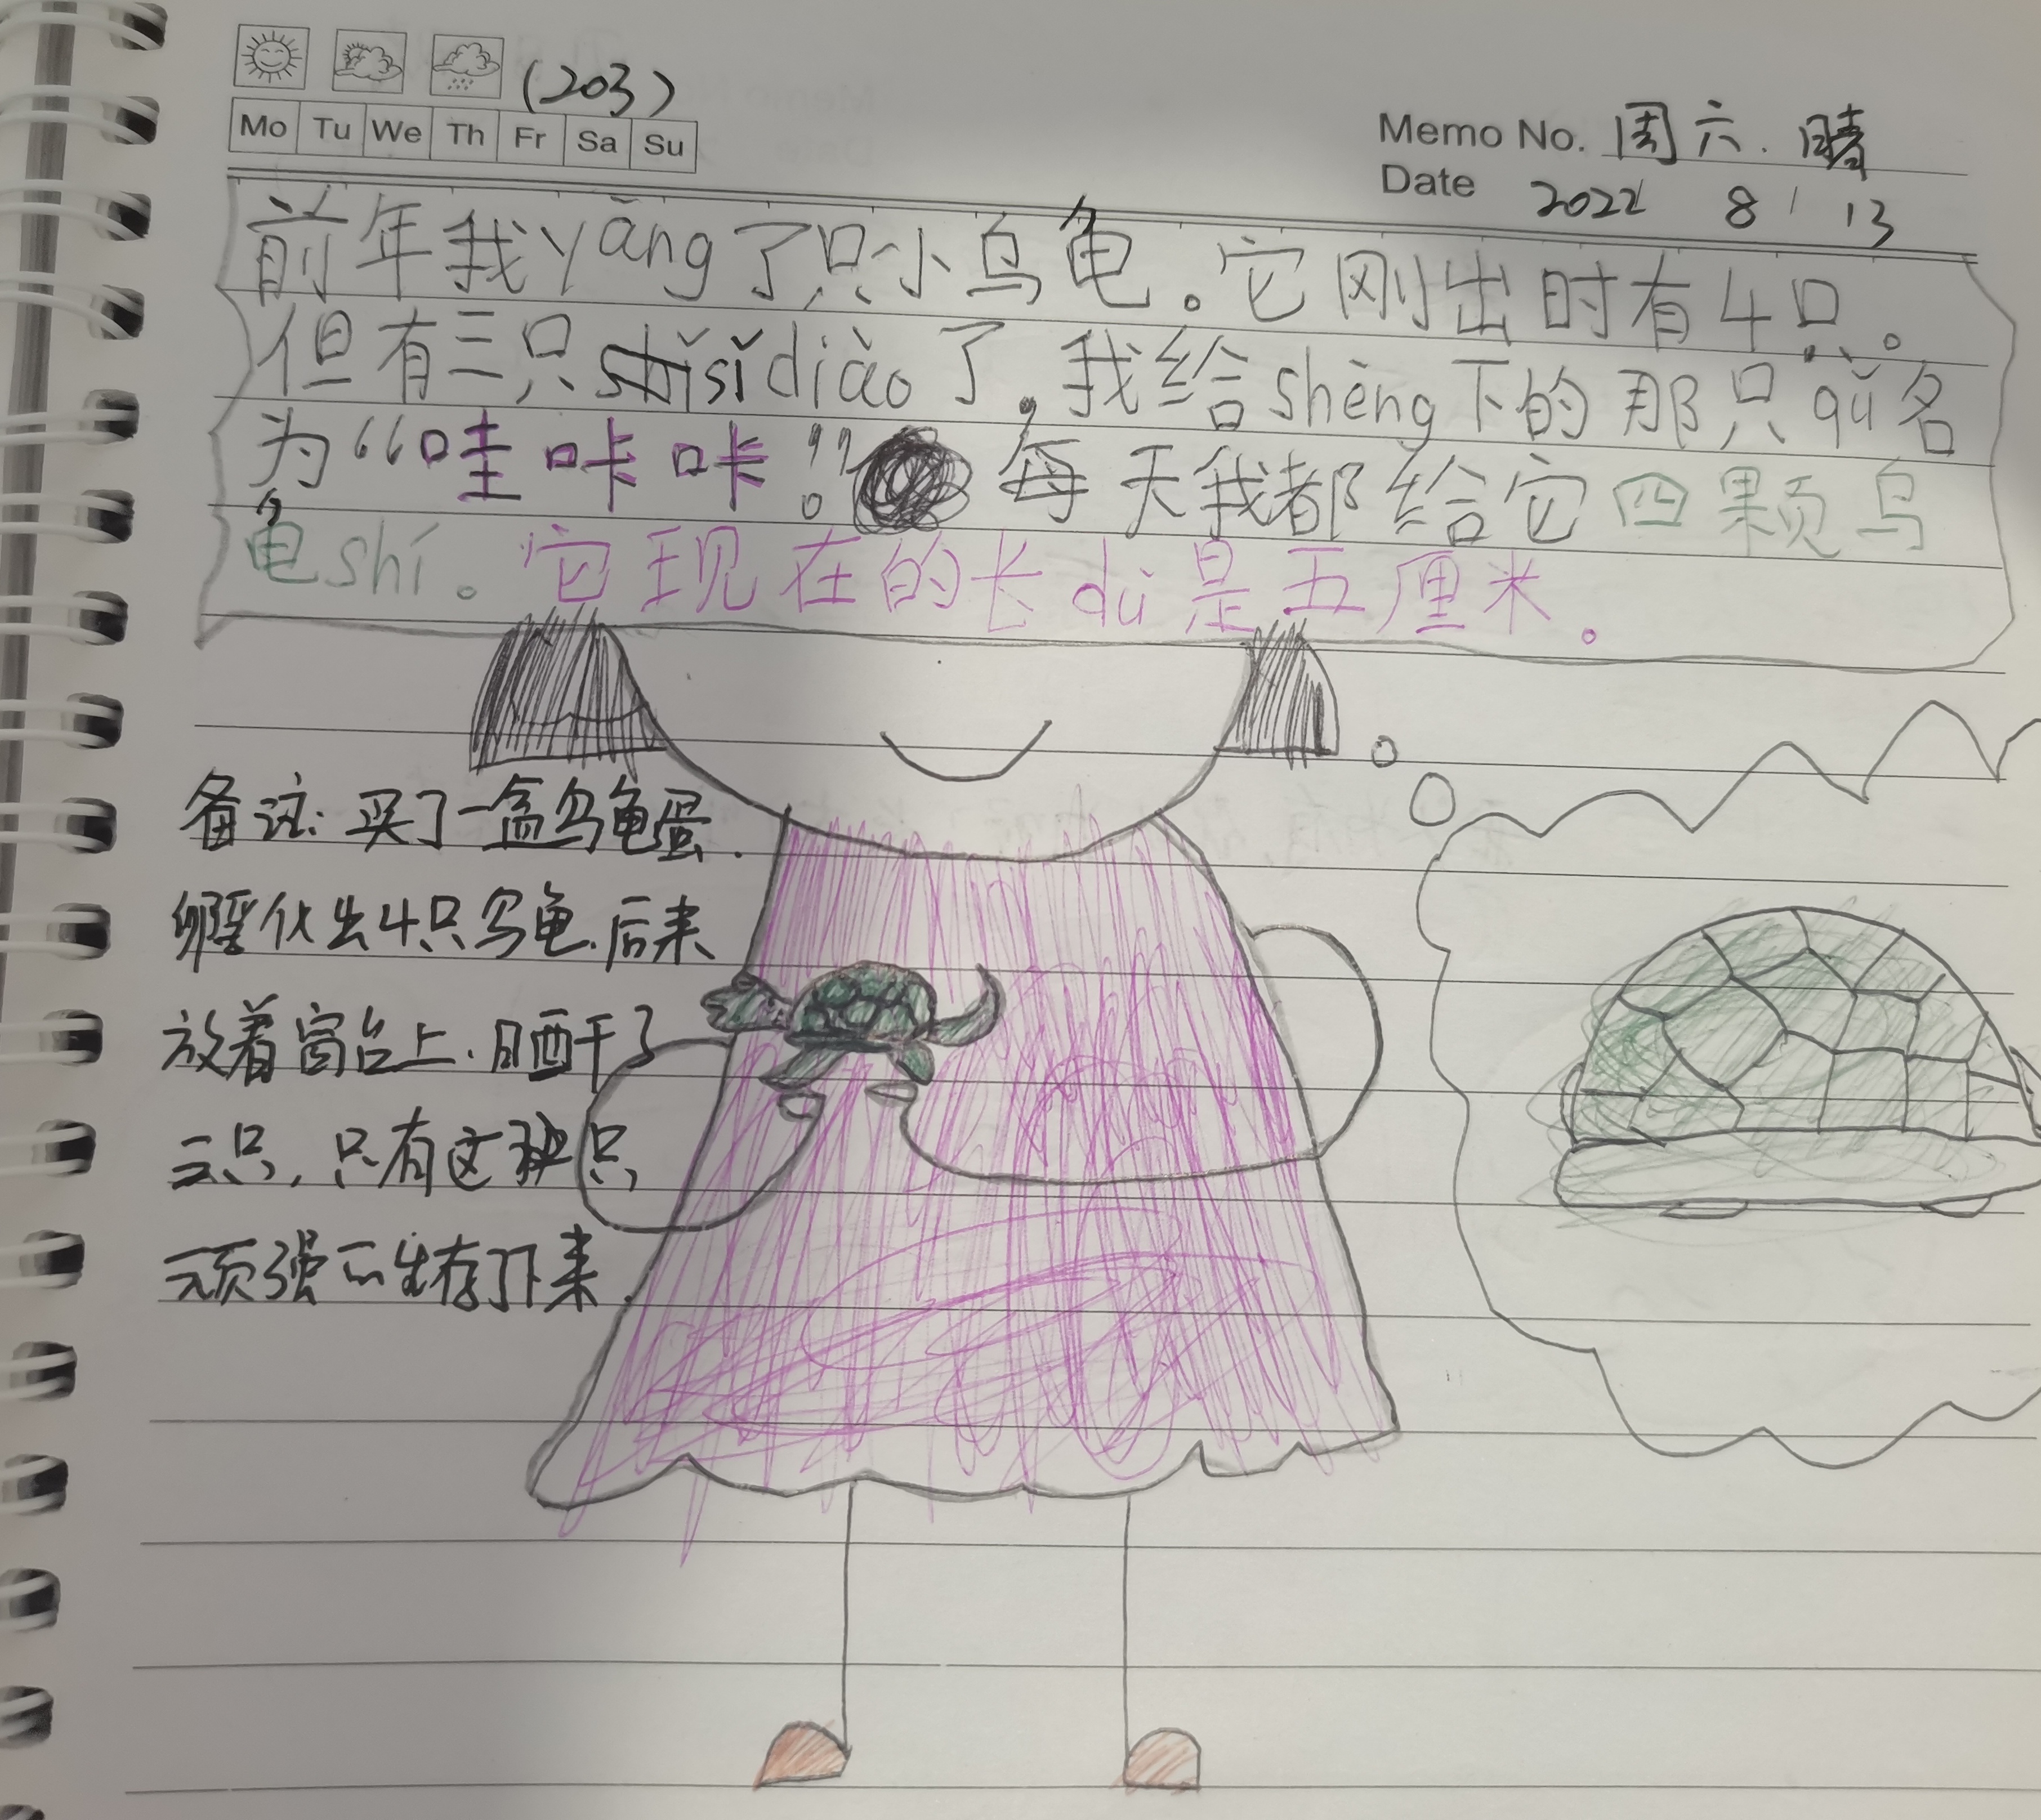 (203)
Mo Tu We Th Fr Sa Su
Memo No. 周六.晴
Date 2022 8 13
前年我yǎng了只小乌龟。它刚出时有4只。
但有三只sǐdiào了,我给shèng下的那只qǔ名
为“哇咔咔!”。每天我都给它四颗乌
龟shí。它现在的长dù是五厘米。
备注:买了一盒乌龟蛋.
孵化出4只乌龟.后来
放着窗台上.晒干了
三只,只有这一只
顽强的生存了下来.